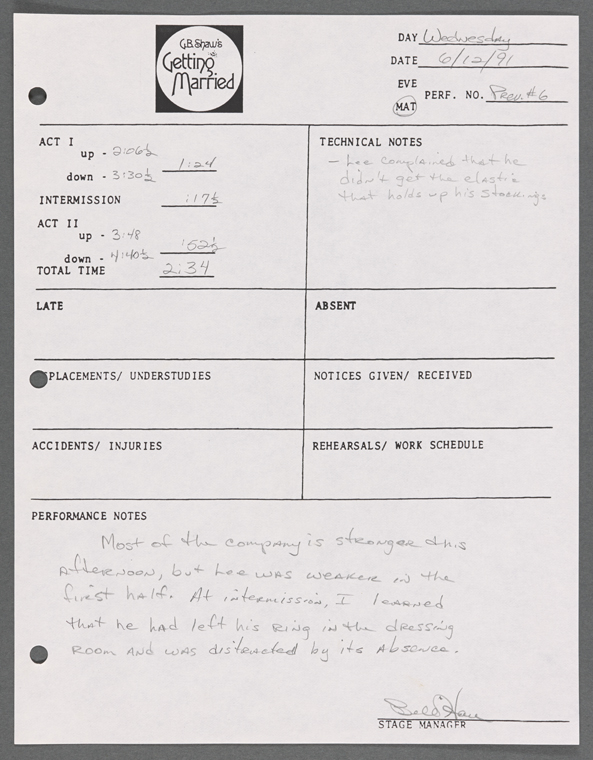 G.B. Shaw's
Getting
Married
DAY Wednesday
DATE 6/12/91
EVE
MAT
PERF. NO. Prev. #6
ACT I
up - 2:06½
1:24
down - 3:30½
INTERMISSION :17½
ACT II
up - 3:48
:52½
down - 4:40½
TOTAL TIME 2:34
TECHNICAL NOTES
- Lee complained that he
didn't get the elastic
that holds up his stockings
LATE
ABSENT
PLACEMENTS/ UNDERSTUDIES
NOTICES GIVEN/ RECEIVED
ACCIDENTS/ INJURIES
REHEARSALS/ WORK SCHEDULE
PERFORMANCE NOTES
Most of the company is stronger this
afternoon, but Lee was weaker in the
first half. At intermission, I learned
that he had left his ring in the dressing
room and was distracted by its absence.
STAGE MANAGER